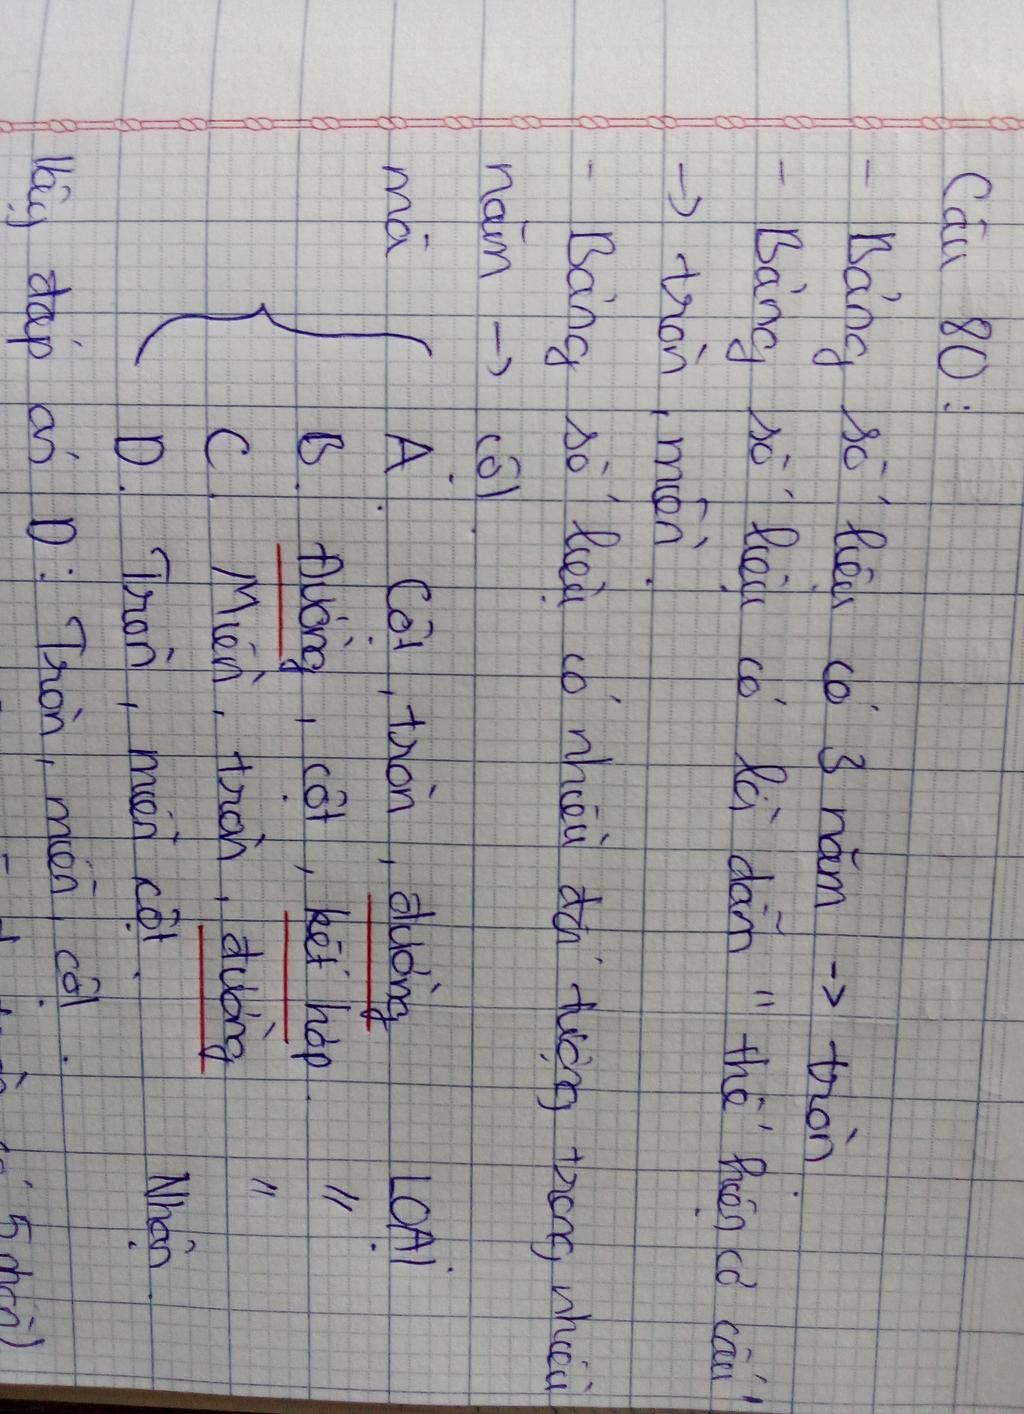 Câu 80 :
- Bảng số liệu có 3 năm -> tròn.
- Bảng số liệu có lời dẫn " thể hiện cơ cấu "
-> tròn, miền.
- Bảng số liệu có nhiều đối tượng trong nhiều
năm -> cột.
mà A. Cột, tròn, đường LOẠI
B. Đường, cột, kết hợp. "
C. Miền, tròn, đường "
D. Tròn, miền cột. Nhận.
Vậy đáp án D : Tròn, miền, cột.
5